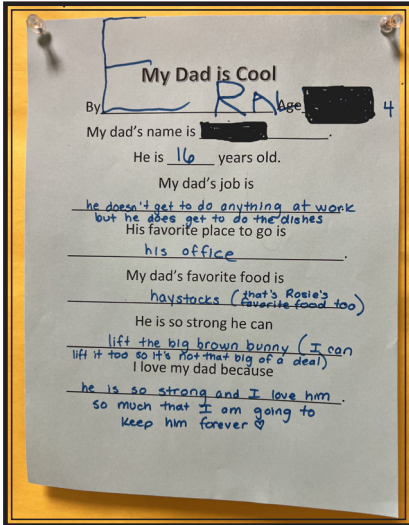 My Dad is Cool
By E RAL Age 4
My dad's name is .
He is 16 years old.
My dad's job is
he doesn't get to do anything at work
but he does get to do the dishes
His favorite place to go is
his office.
My dad's favorite food is
haystacks (that's Rosie's
favorite food too)
He is so strong he can
lift the big brown bunny (I can
lift it too so it's not that big of a deal)
I love my dad because
he is so strong and I love him.
so much that I am going to
keep him forever ♡